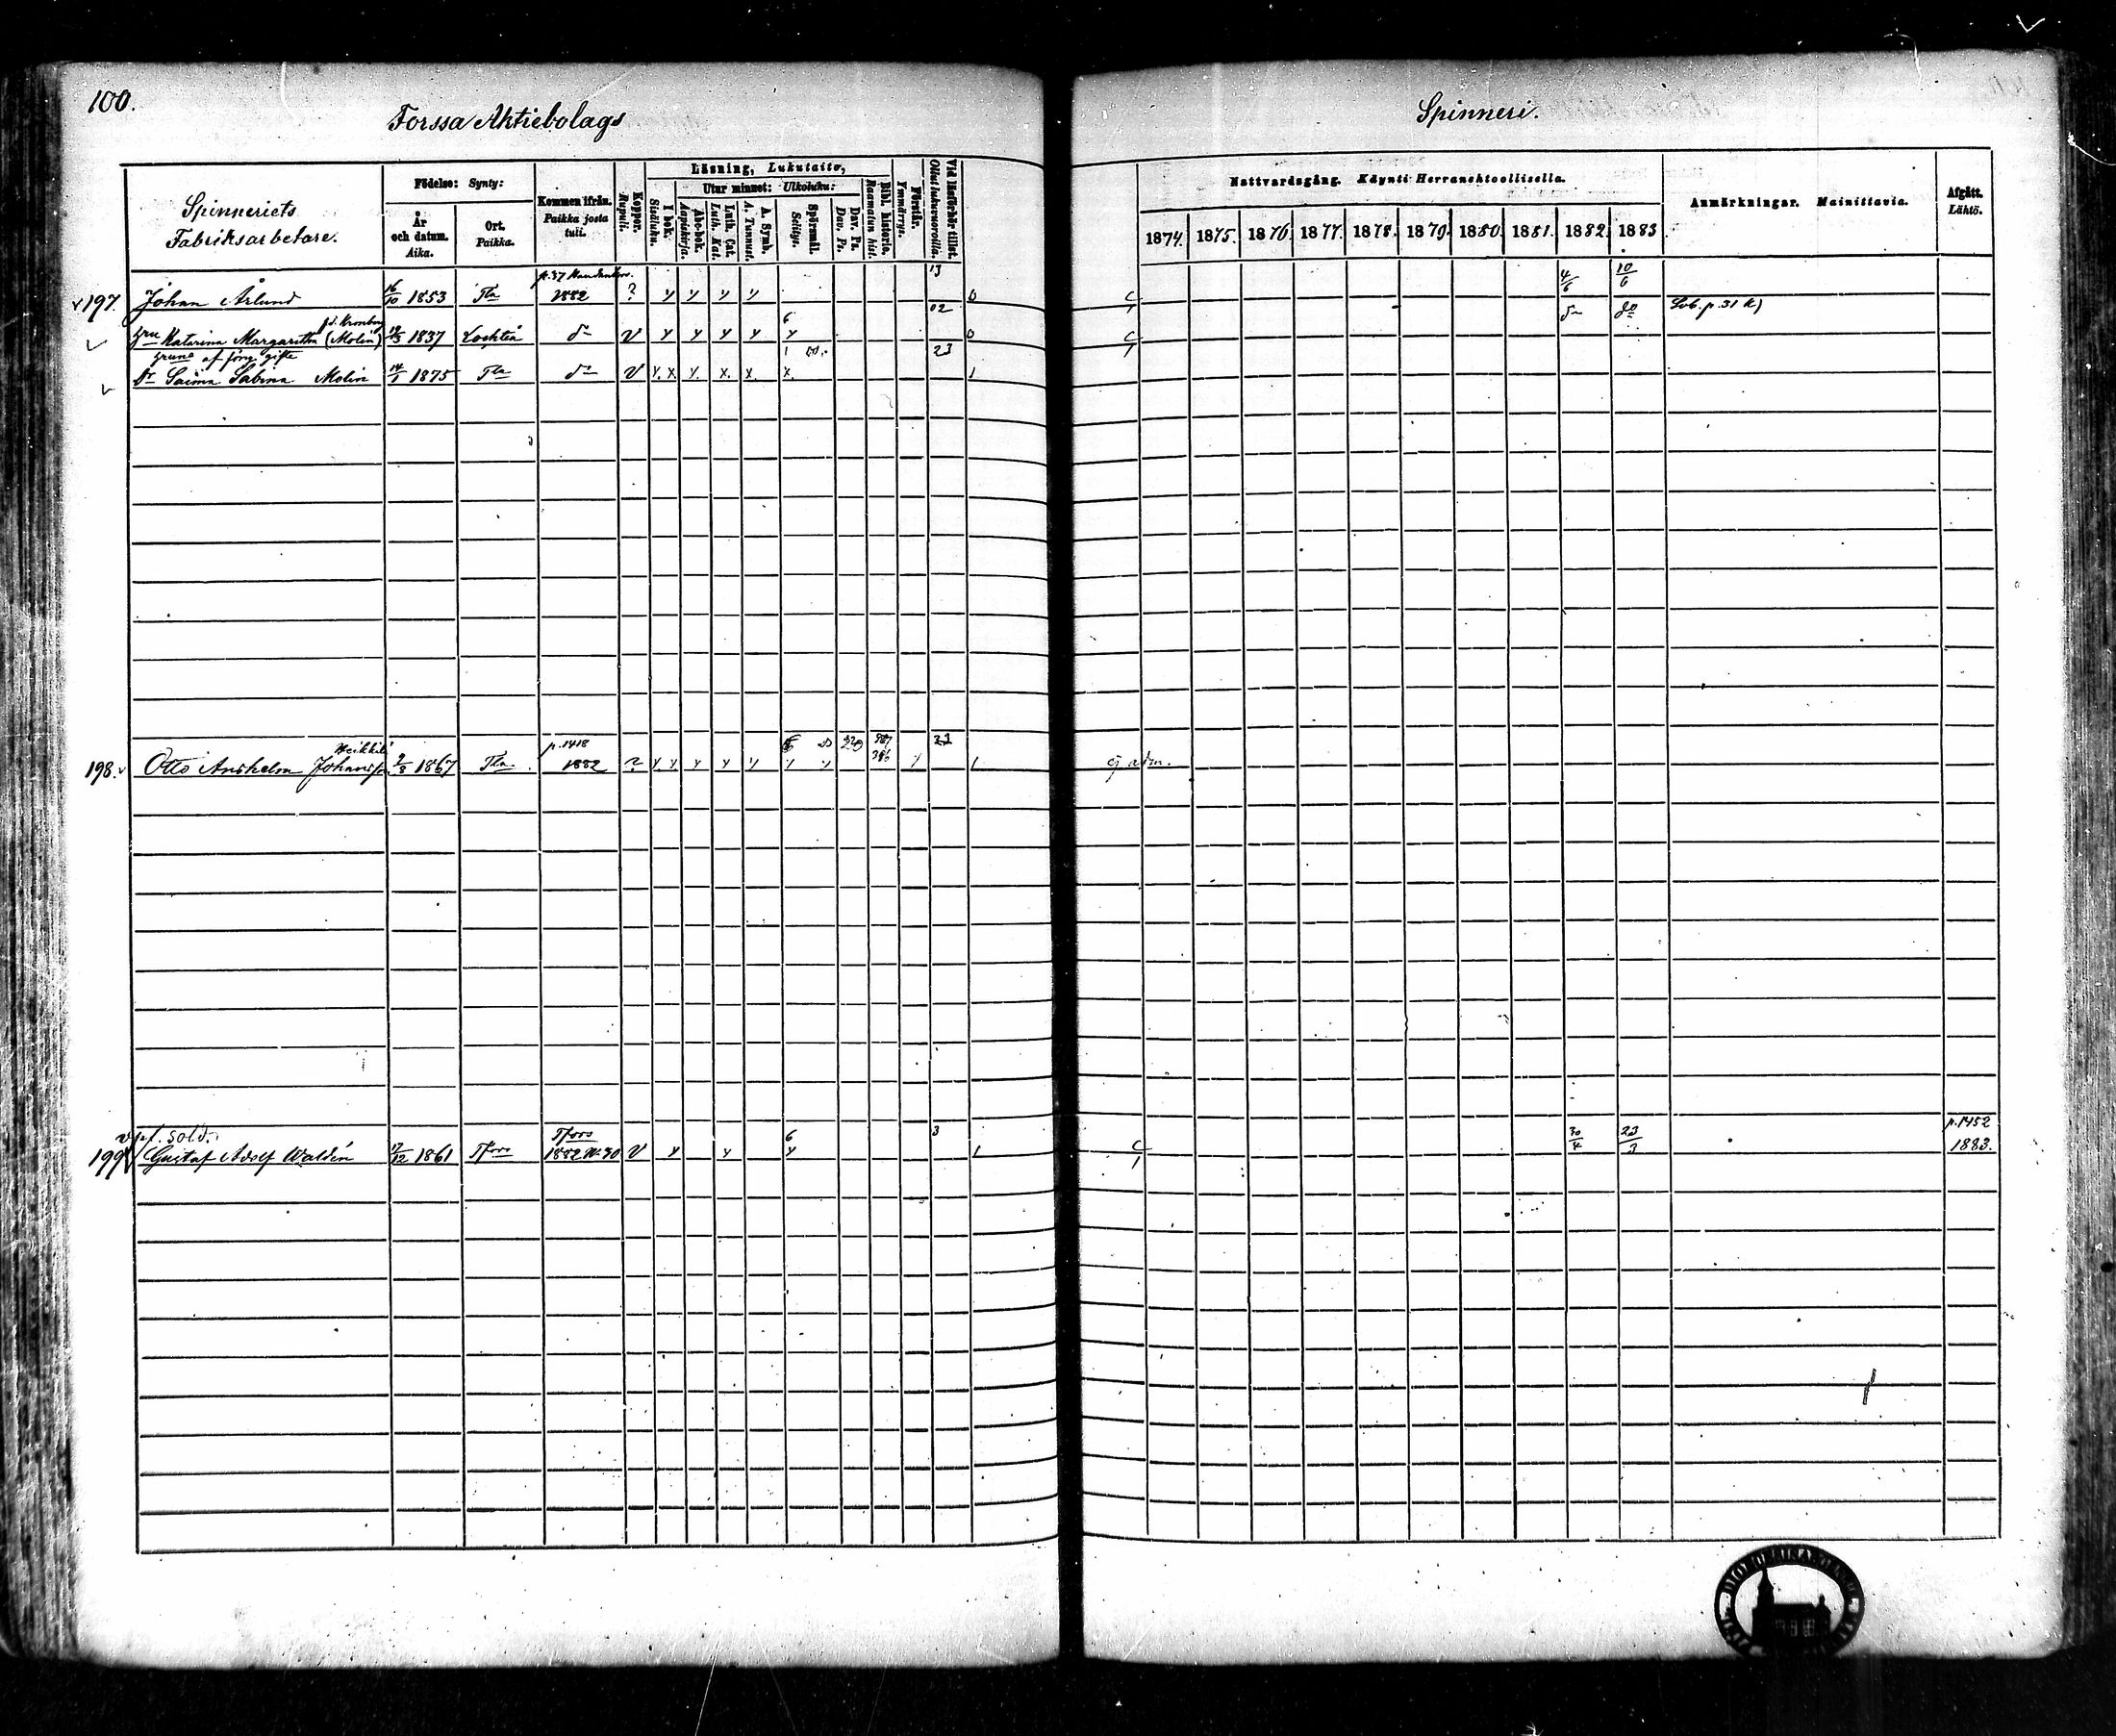 100.
Forssa Aktiebolags
Spinneri.
Spinneriets
Fabriksarbetare.
Födelse: Synty:
År
och datum.
Aika.
Ort.
Paikka.
Kommen ifrån.
Paikka josta
tuli.
Koppor.
Rupuli.
Läsning, Lukutaito,
I bok.
Sisäluku.
Utur minnet: Ulkoluku:
Abc-bok.
Aapiskirja.
Luth. Cat.
Luth. Kat.
A. Symb.
A. Tunnust.
Spörsmål.
Selitys.
Dav. Ps.
Dav. Ps.
Bibl. historie.
Raamatun hist.
Förstår.
Ymmärrys.
Vid läsförhör tillst.
Ollut lukuvuorolla.
Nattvardsgång. Käynti Herranehtoollisella.
1874. 1875. 1876. 1877. 1878. 1879. 1880. 1881. 1882. 1883
Anmärkningar. Mainittavia.
Afgått.
Lähtö.
197. Johan Årlund 16/10 1853 Tla p. 37 1882 ? y y y y 13 0 4/6 10/6
Hru Katarina Margaretha (Molin) 1837 Lochteå do v y y y y 6 y 02 0 do Lob. p. 31 K)
Hruns af förra gifte
Dr Saima Sabina Molin 14/1 1875 Tla do v x. x. x. x. 23 1
198. Otto Anshelm Johansson Heikkilä 2/8 1867 Tla p. 1418 1882 ? y y y y y y y y 23 1 ej adm.
vpl. sold.
199 Gustaf Adolf Waldén 1861 Tfors Tfors 1882 N. 90 v y y 6 y 3 1 30/4 23/3 p. 1452 1883.